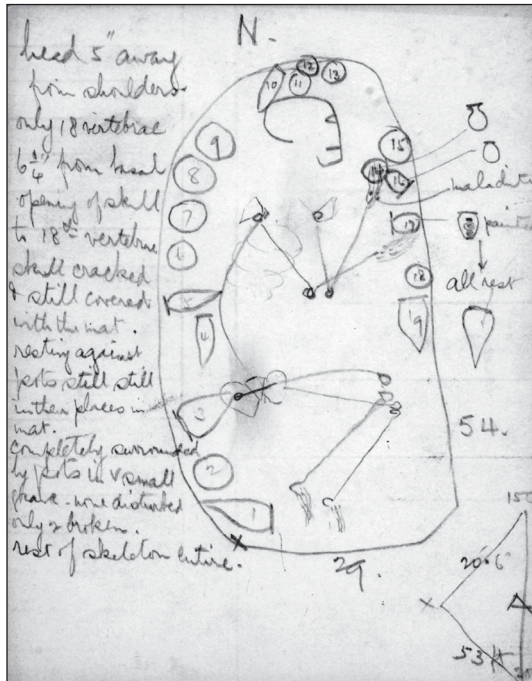 N.
head 5" away
from shoulders
only 18 vertebrae
6 1/4" from basal
opening of skull
to 18th vertebrae
skull cracked
& still covered
with the mat.
resting against
pots still still
in their places in
mat.
completely surrounded
by pots in v small
grave - none disturbed
only 2 broken.
rest of skeleton entire.
12
13
10
11
9
8
7
6
5
4
3
2
1
15
14
16
17
18
19
malachite
paint
all rest
54.
29.
15
20.6
53
X
X